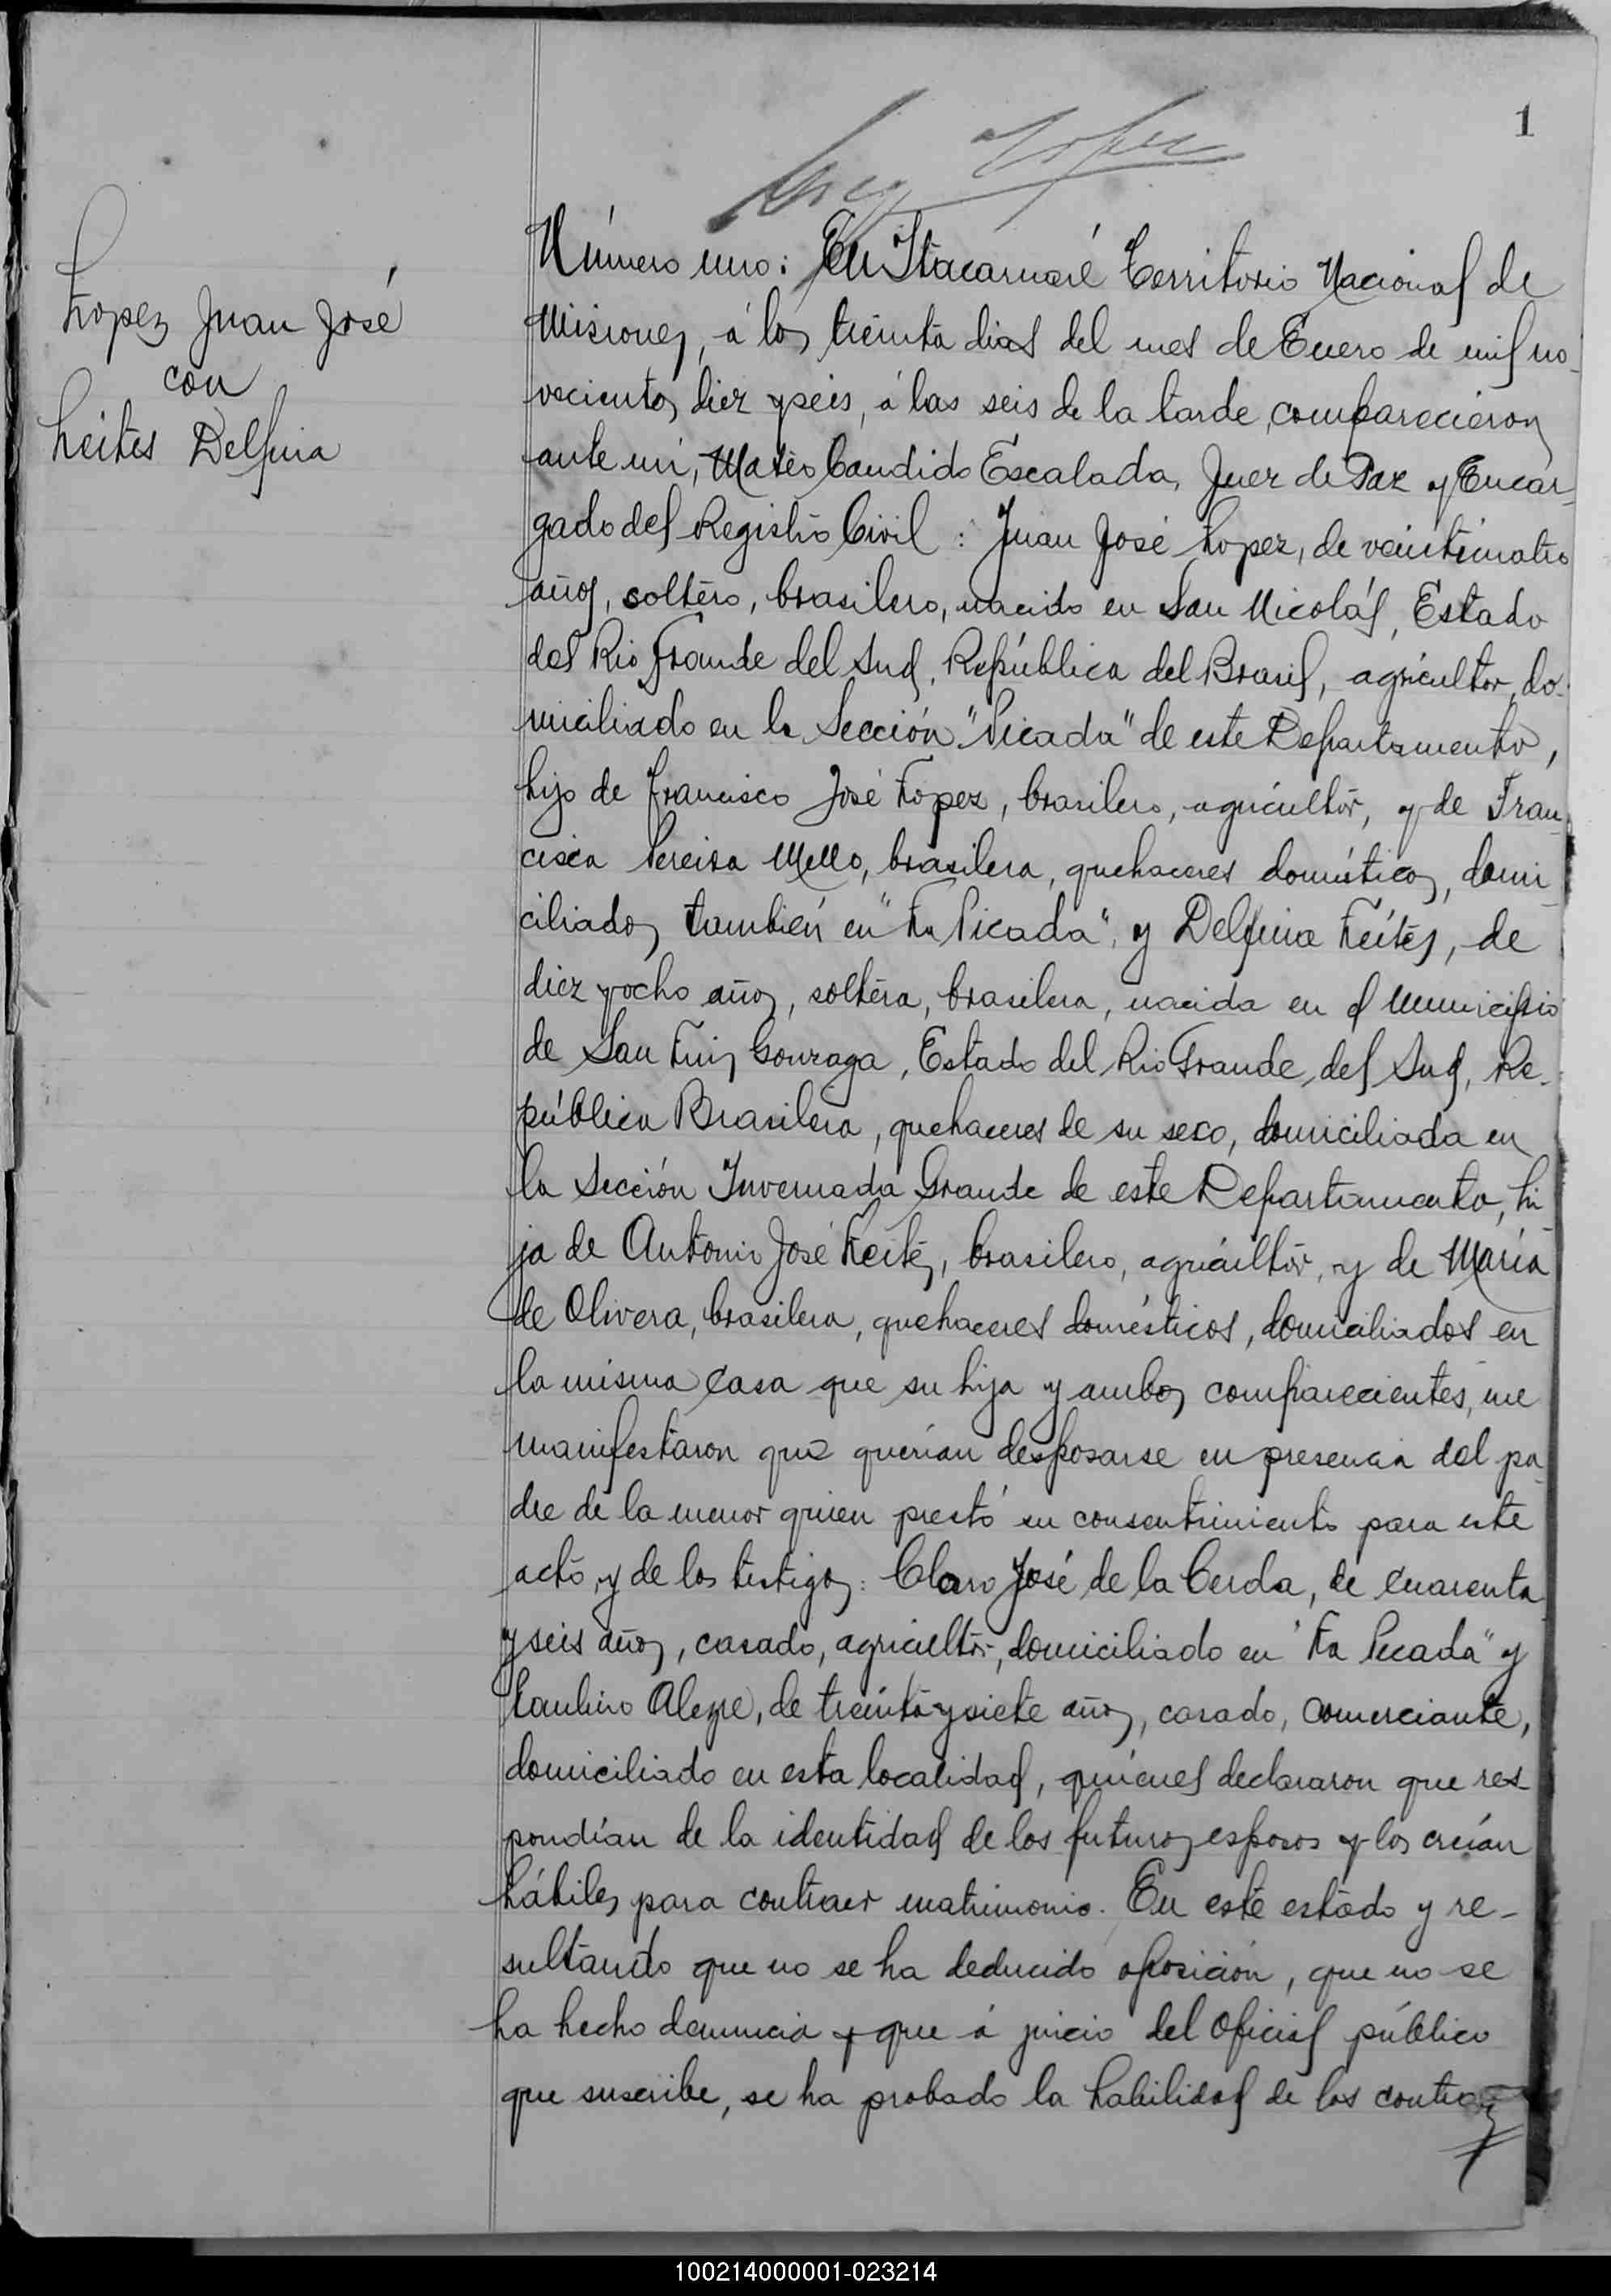 1
Lopez Juan José
con
Leites Delfina
Número uno: En Itacaruaré Territorio Nacional de
Misiones, á los treinta dias del mes de Enero de mil no-
vecientos diez y seis, á las seis de la tarde, comparecieron
ante mi, Mateo Candido Escalada, Juez de Paz y Encar-
gado del Registro Civil: Juan José Lopez, de veinticuatro
años, soltero, brasilero, nacido en San Nicolás, Estado
del Rio Grande del Sud, República del Brasil, agricultor, do-
miciliado en la Sección "Picada" de este Departamento,
hijo de Francisco José Lopez, brasilero, agricultor, y de Fran-
cisca Pereira Mello, brasilera, quehaceres domésticos, domi-
ciliados también en "La Picada", y Delfina Leites, de
diez y ocho años, soltera, brasilera, nacida en el Municipio
de San Luis Gonzaga, Estado del Rio Grande del Sud, Re-
pública Brasilera, quehaceres de su sexo, domiciliada en
la Sección Invernada Grande de este Departamento, hi-
ja de Antonio José Leites, brasilero, agricultor, y de María
de Olivera, brasilera, quehaceres domésticos, domiciliados en
la misma casa que su hija y ambos comparecientes, me
manifestaron que querían desposarse en presencia del pa-
dre de la menor quien prestó su consentimiento para este
acto, y de los testigos: Claro José de la Cerda, de cuarenta
y seis años, casado, agricultor, domiciliado en "La Picada" y
Alegre, de treinta y siete años, casado, comerciante,
domiciliado en esta localidad, quienes declararon que res-
pondían de la identidad de los futuros esposos y los creían
hábiles para contraer matrimonio. En este estado y re-
sultando que no se ha deducido oposición, que no se
ha hecho denuncia y que á juicio del Oficial público
que suscribe, se ha probado la habilidad de los contra
100214000001-023214